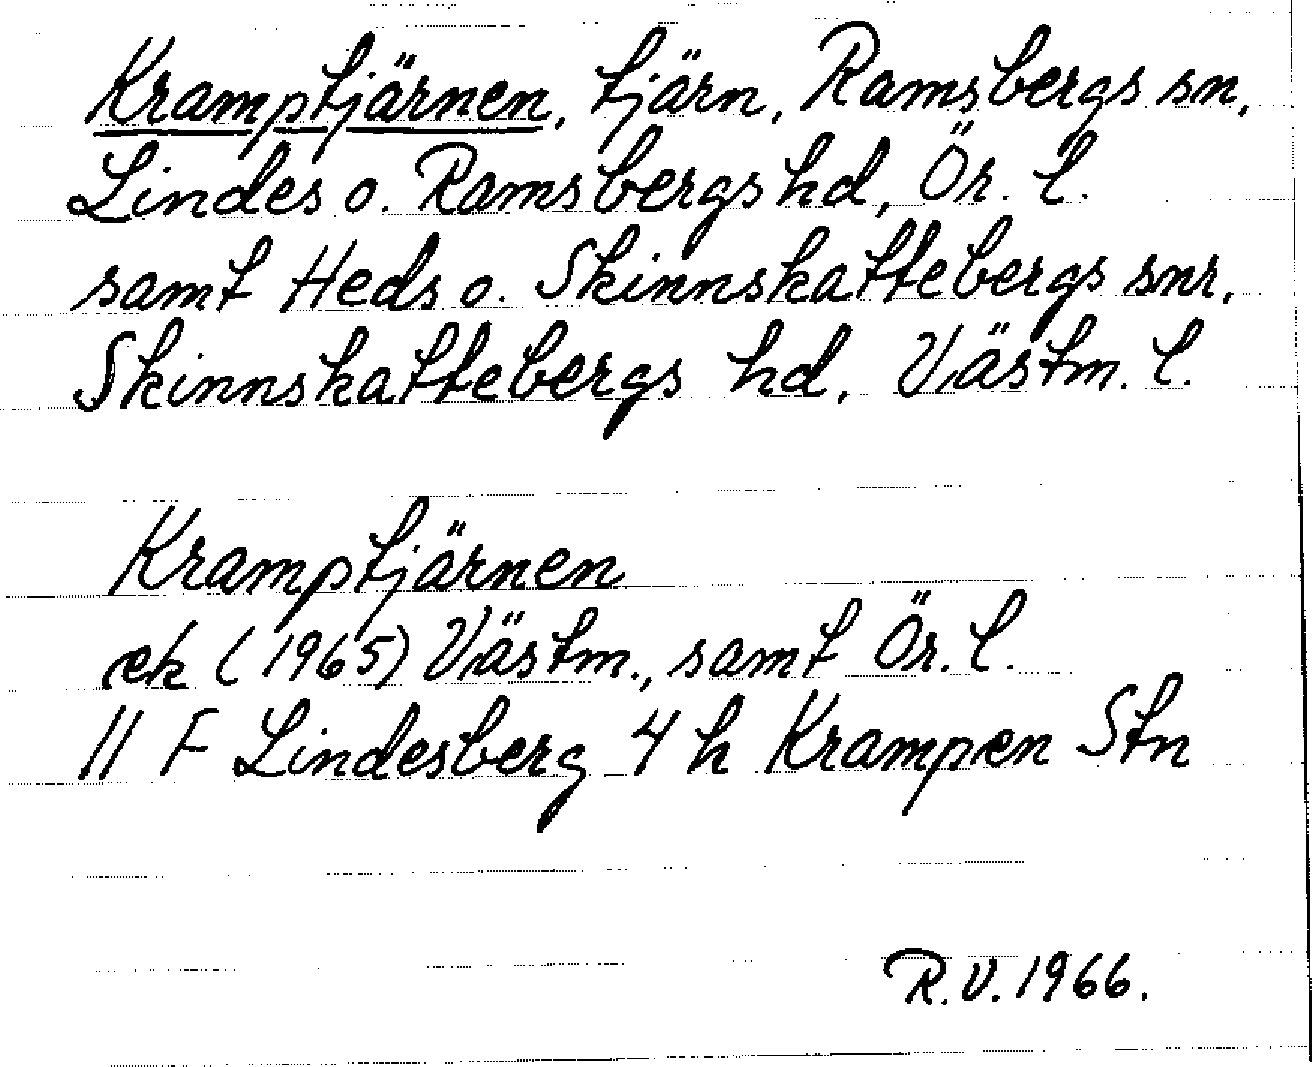 Kramptjärnen, tjärn, Ramsbergs sn,
Lindes o. Ramsbergs hd, Ör. l.
samt Heds o. Skinnskattebergs snr,
Skinnskattebergs hd, Västm. l.
Kramptjärnen
ek (1965) Västm., samt Ör. l.
11 F Lindesberg 4 h Krampen Stn
R.V. 1966.